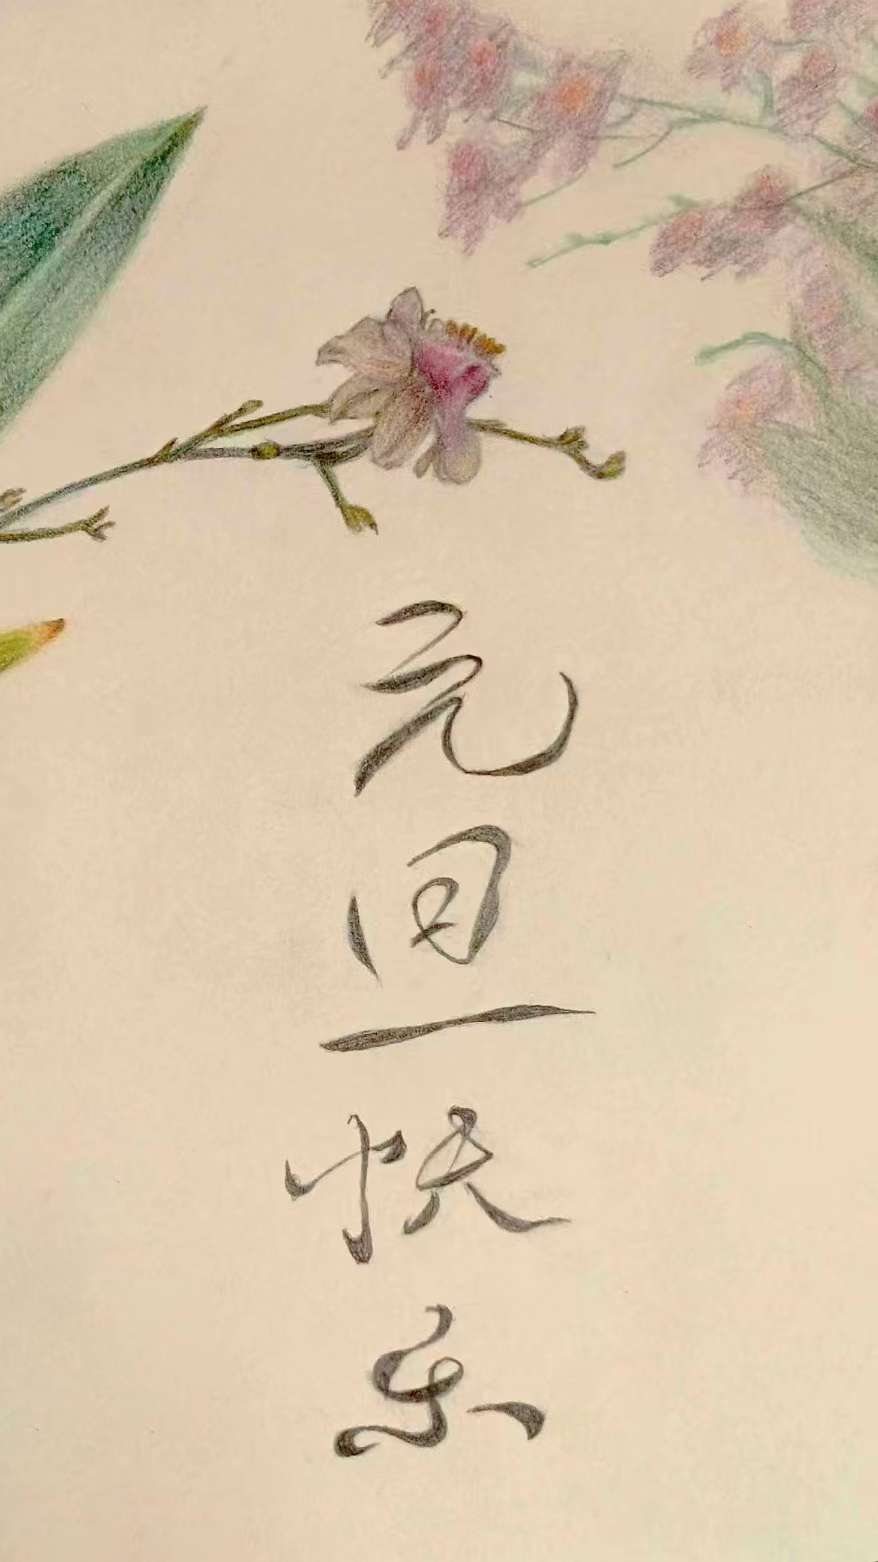 元旦快乐